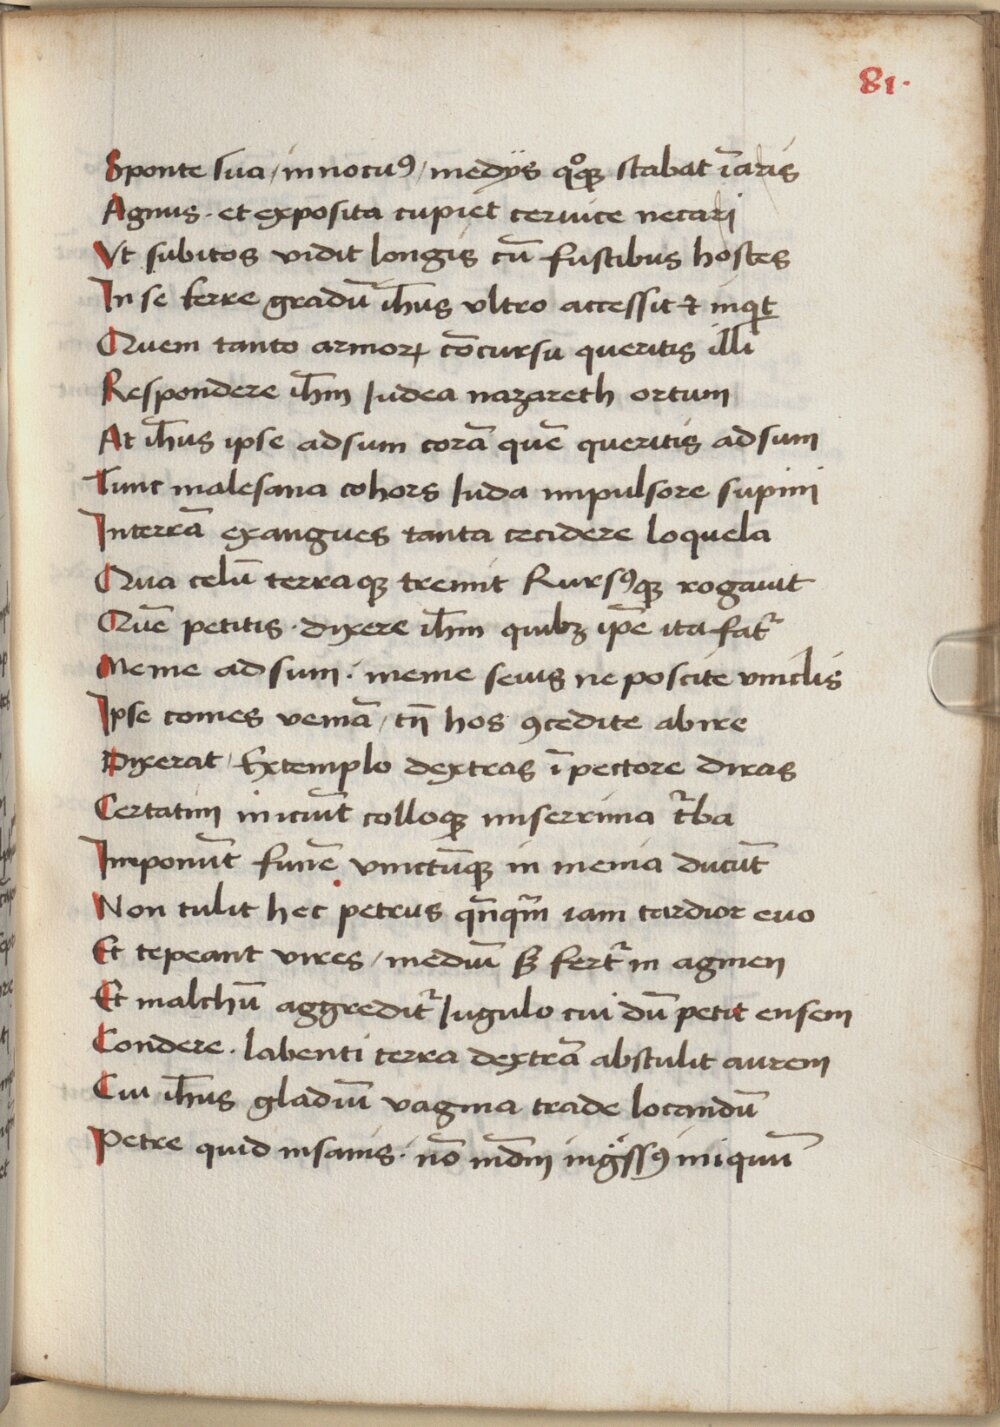 81.
Sponte sua / innocuꝰ / medijs qͦqꝫ stabat ī aris
Agnus . et exposita cupiet ceruice necari
Vt subitos vidit longis cū fustibus hostes
In se ferre gradū ih̄us vltro accessit ⁊ inqͥt
Quem tanto armoꝝ cōcursu queritis illi
Respondere ih̄m Iudea nazareth ortum
At ih̄us ipse adsum corā quē queritis adsum
Tunc malesana cohors Iuda impulsore supini
Interrā exangues tanta cecidere loquela
Qua celū terraqꝫ tremit Rursꝰqꝫ rogauit
Quē petitis . dixere ih̄m quibꝫ ip̄e ita fat᷑
Meme adsum . meme seuis ne poscite vinclis
Ipse comes veniā / tn̄ hos ꝯcedite abire
Dixerat / Extemplo dextras ī pectore diras
Certatim iniciūt colloqꝫ miserrima t᷑ba
Imponūt funē vinctūqꝫ in menia ducūt
Non tulit hec petrus qn̄qm̄ iam tardior euo
Et tepeant vires / mediū sꝫ fert᷑ in agmen
Et malchū aggredit᷑ Iugulo cui dū petit ensem
Condere . labenti terra dextrā abstulit aurem
Cui ih̄us gladiū vagina trade locandū
Petre quid insanis . nō m̄dm ingͣssꝰ iniquū